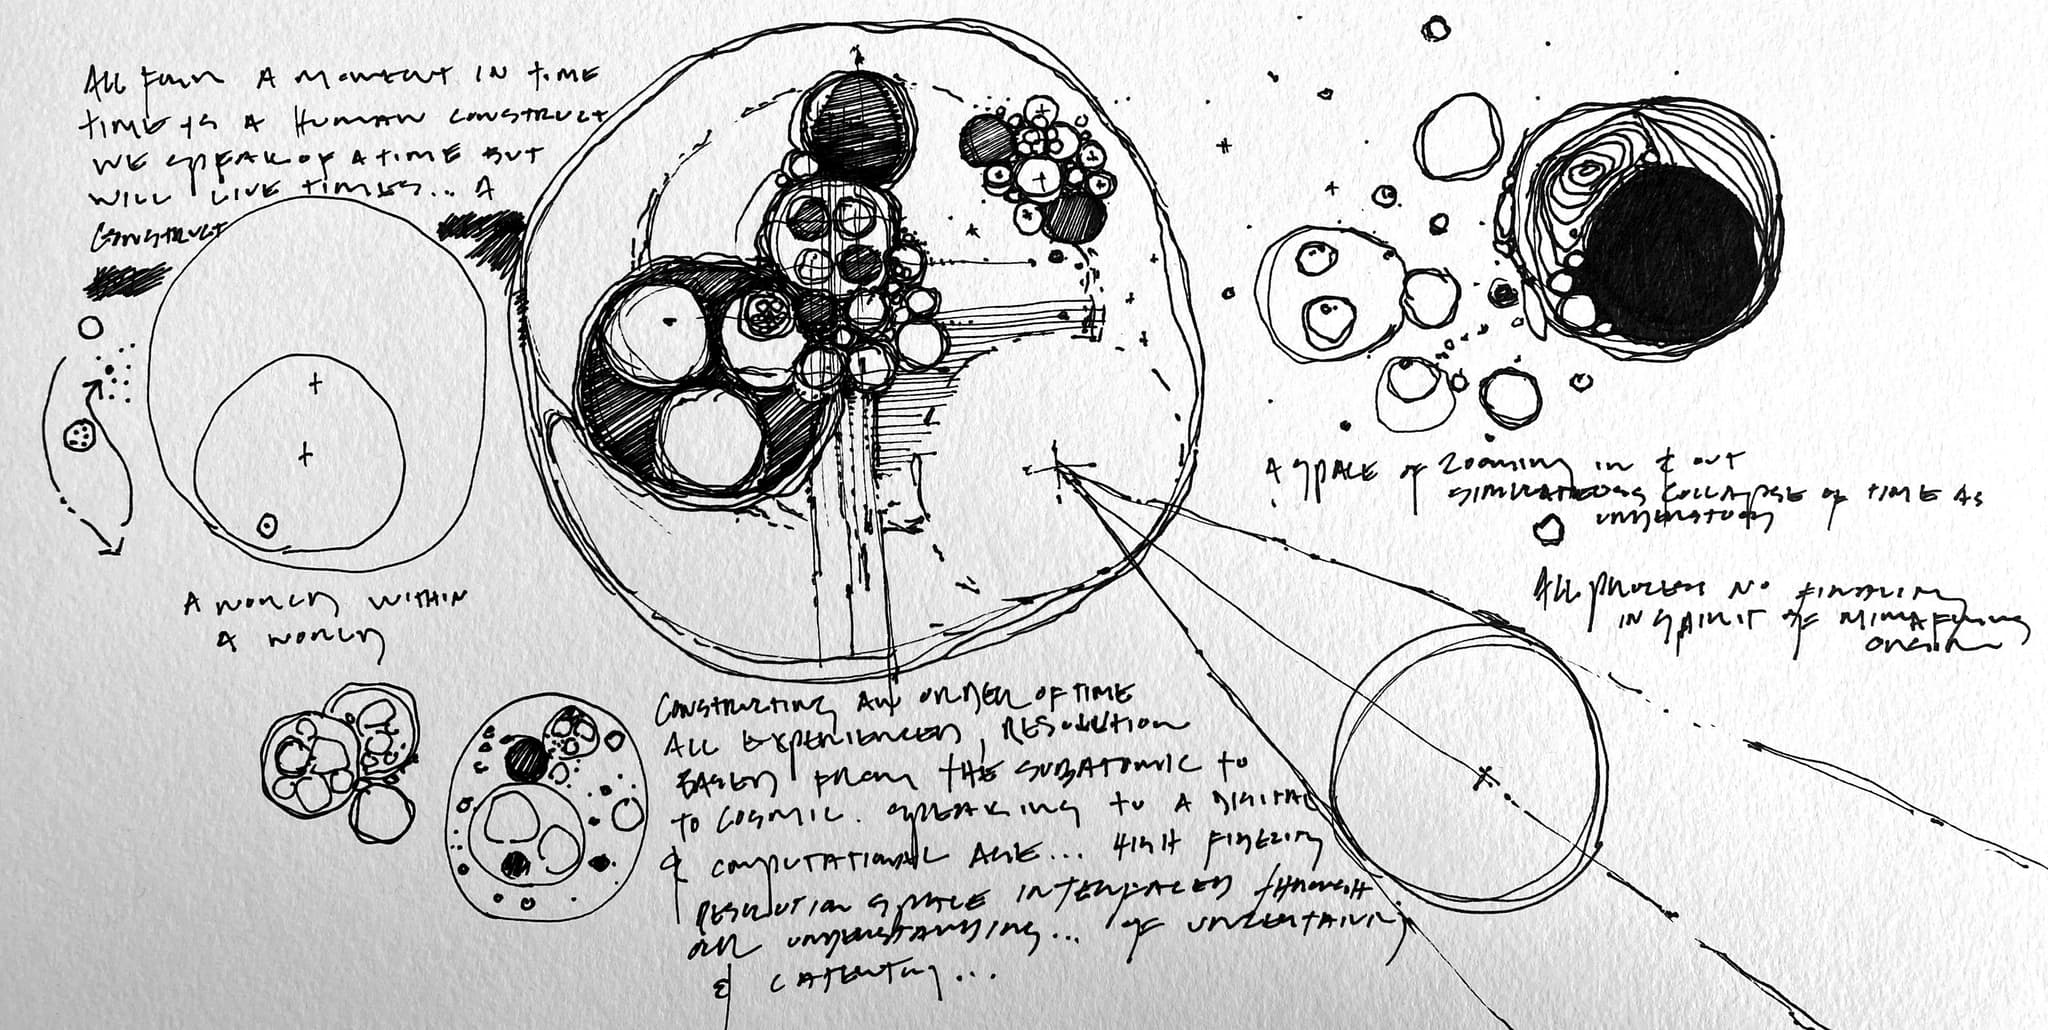 ALL FROM A MOMENT IN TIME
TIME IS A HUMAN CONSTRUCT
WE SPEAK OF A TIME BUT
WILL LIVE TIMES... A
CONSTRUCT
A WORLD WITHIN
A WORLD
CONSTRUCTING AN ORDER OF TIME
ALL EXPERIENCED, RESOLUTION
BASED FROM THE SUBATOMIC TO
TO COSMIC. SPEAKING TO A DIGITAL
& COMPUTATIONAL AGE... HIGH
RESOLUTION SPACE INTERFACED THROUGH
OUR UNDERSTANDING... OF UNCERTAINTY
&
A SPACE OF ZOOMING IN & OUT
SIMULTANEOUS COLLAPSE OF TIME AS
UNDERSTOOD
ALL PROCESS NO FINALITY
IN SPIRIT OF
ORIGIN